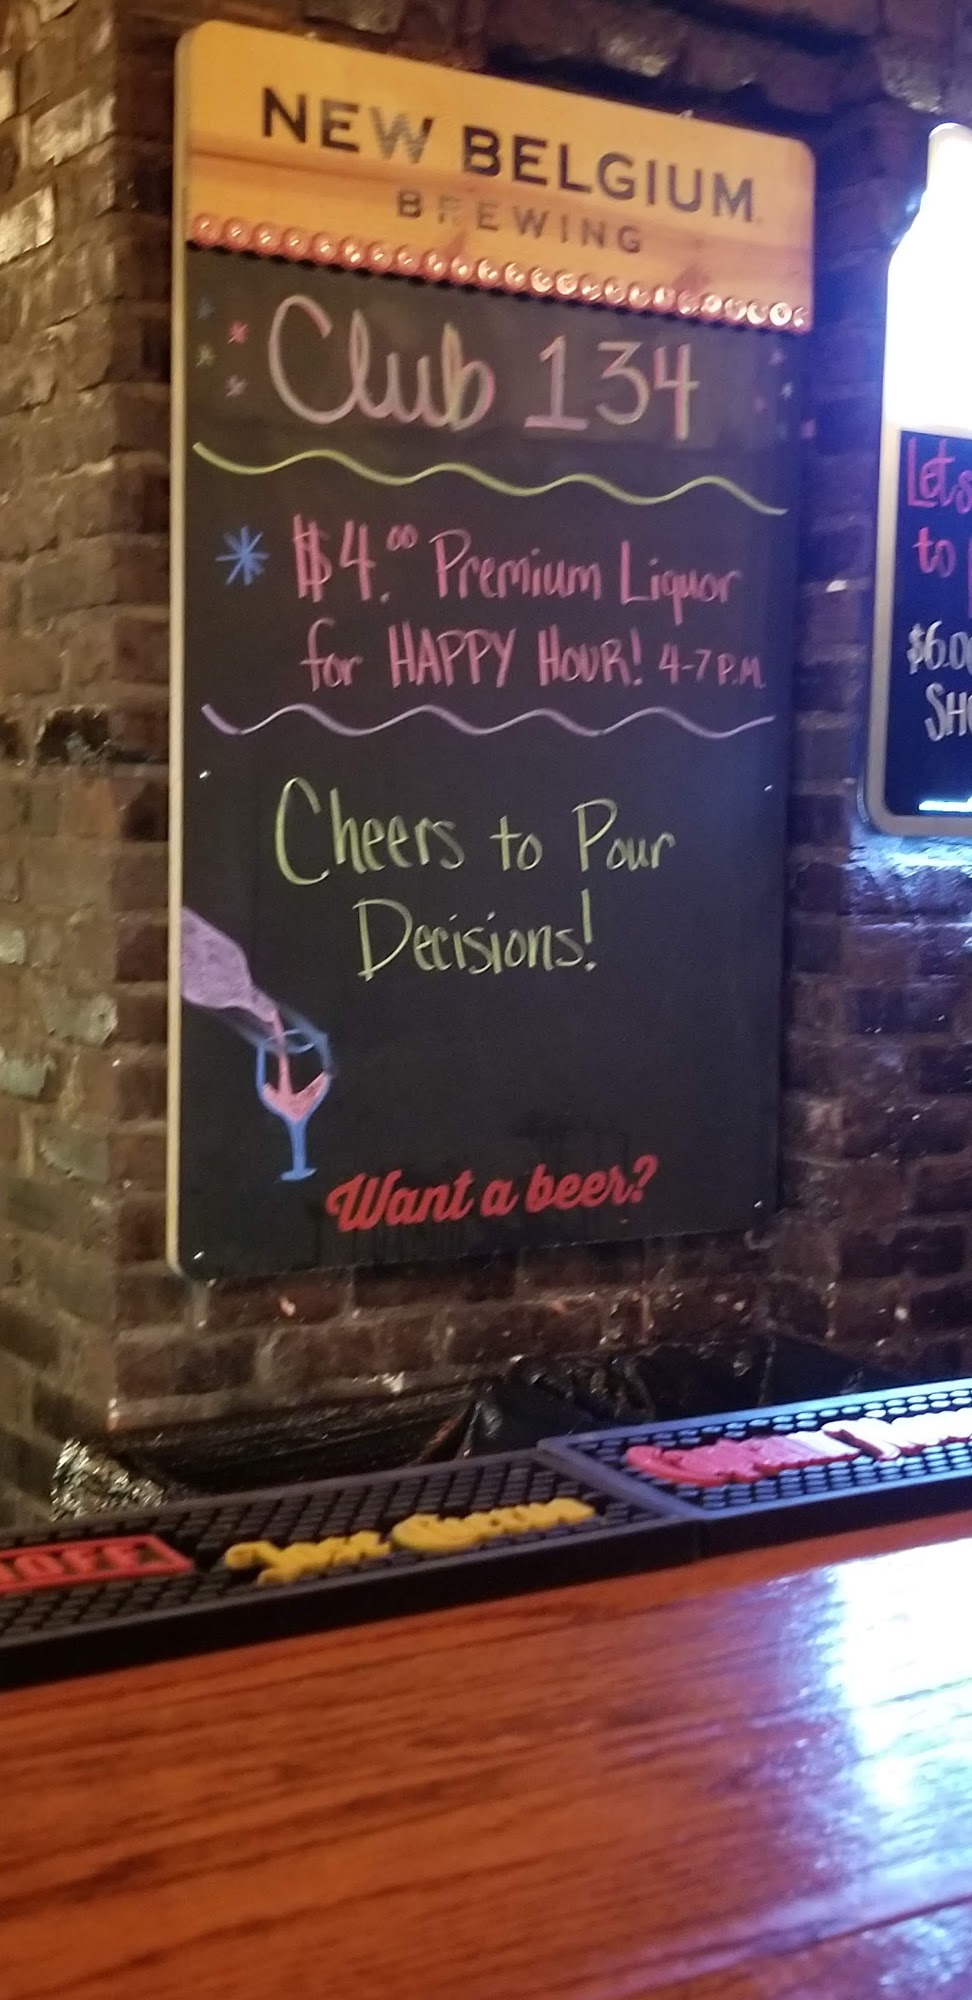 NEW BELGIUM
BREWING
Club 134
* $4.00 Premium Liquor
for HAPPY HOUR! 4-7 P.M.
Cheers to Pour
Decisions!
Want a beer?
Lets
to
$6.00
Jose Cuervo